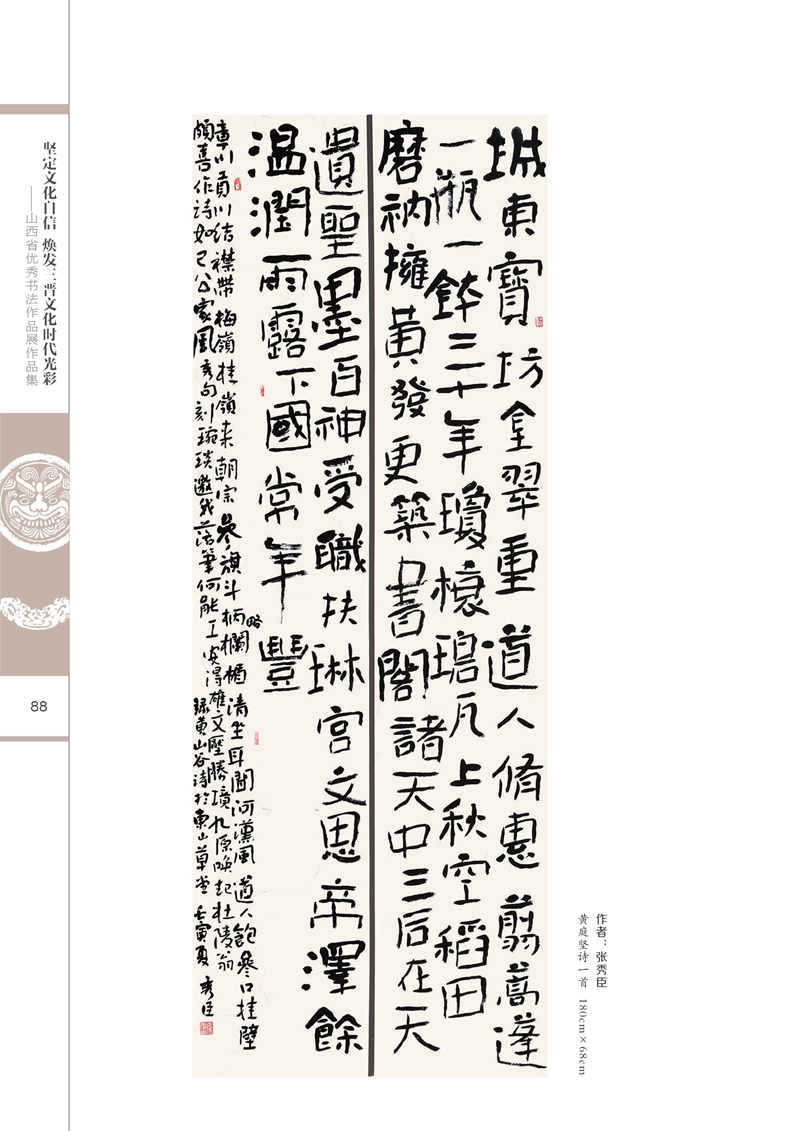 坚定文化自信 焕发三晋文化时代光彩
——山西省优秀书法作品展作品集
88
城東寶坊金翠重道人脩惠剪蒿蓬
一瓶一鉢三十年瓊榱碧瓦上秋空稻田
磨衲擁黄發更築書閣諸天中三后在天
遺聖墨百神受職扶琳宫文思帝澤餘
温潤雨露下國常年豐
章川貢川結襟帶梅嶺桂嶺来朝宗參旗斗柄略欄楯清坐耳聞河漢風道人飽參口挂壁
頗喜作詩如已公家風秀句刻琬琰邀我落筆何能工安得雄文壓勝境九原唤起杜陵翁
録黄山谷詩於東山草堂 壬寅夏 秀臣
作者：张秀臣
黄庭坚诗一首 180cm×68cm